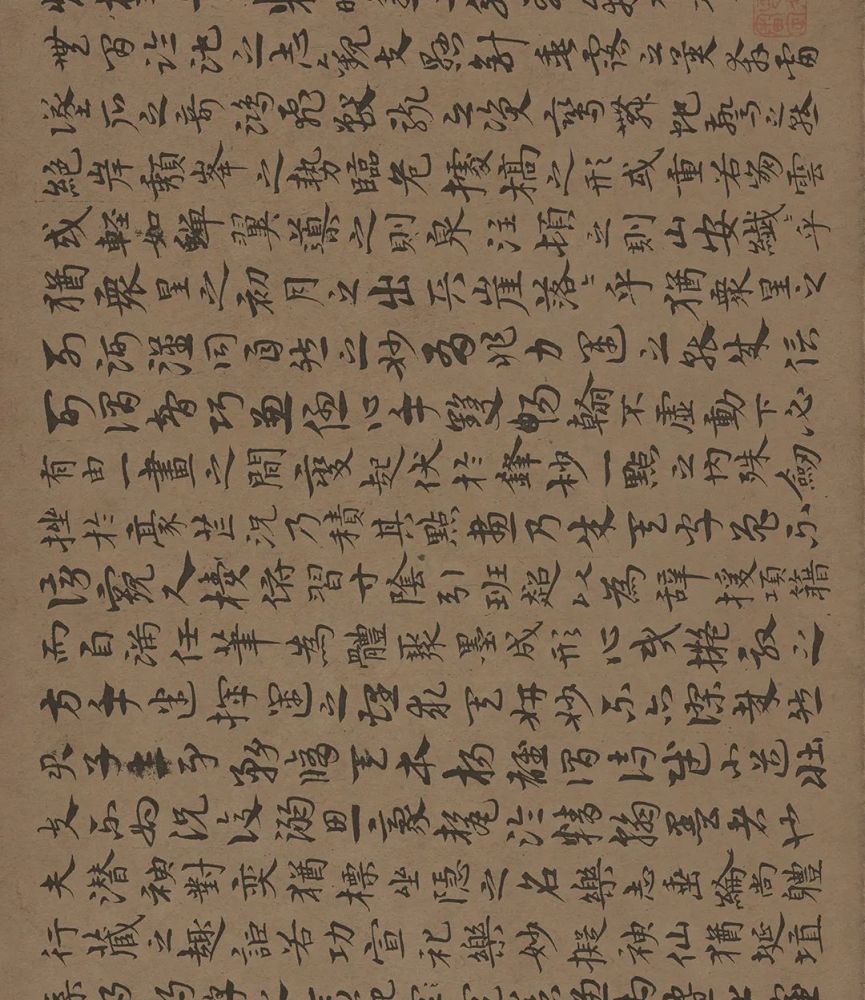 無間臨池之志觀夫懸針垂露之異奔雷
墜石之奇鴻飛獸駭之資鸞舞蛇驚之態
絕岸頹峯之勢臨危據槁之形或重若崩雲
或輕如蟬翼導之則泉注頓之則山安纖〻乎
猶衆星之初月之出天崖落〻乎猶衆星之
列河漢同自然之妙有非力運之能成信
可謂智巧兼優心手雙暢翰不虛動下必
有由一畫之間變起伏於鋒杪一點之內殊衄
挫於豪芒況乃積其點畫乃成其字曾不
傍窺尺櫝俯習寸陰引班超以為辭援項籍
而自滿任筆為體聚墨成形心昏擬效之
方手迷揮運之理求其妍妙不亦謬哉然
君子立身務脩其本楊雄謂詩賦小道壯
夫不為況復溺思豪氂淪精翰墨者也
夫潛神對奕猶標坐隱之名樂志垂綸尚體
行藏之趣詎若功宣礼樂妙擬神仙猶埏埴